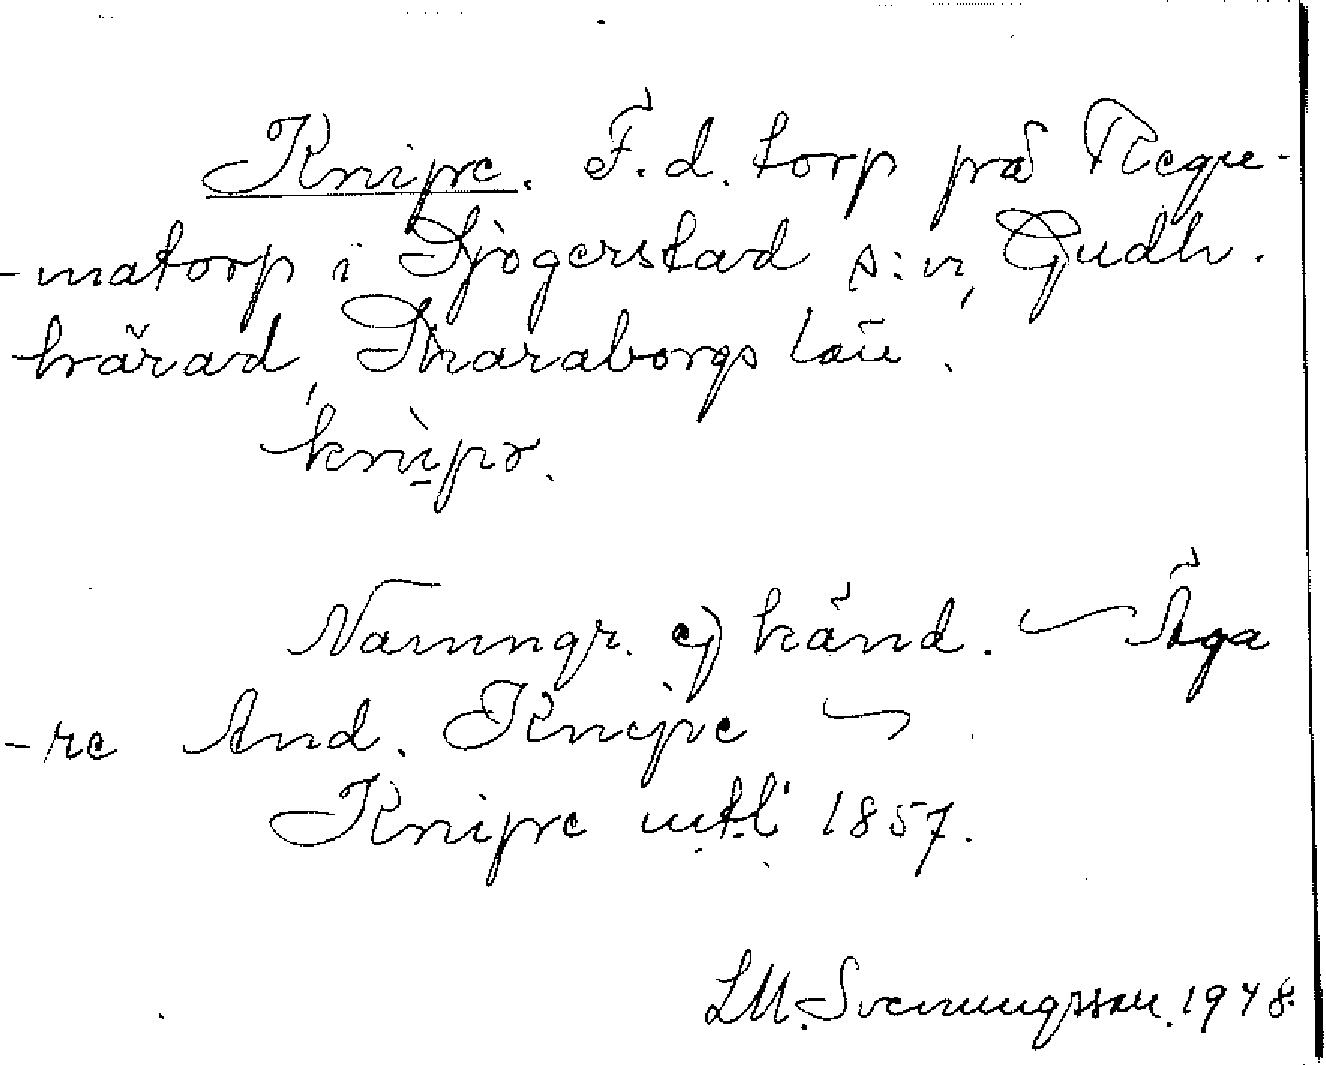 Knipe. F.d. torp på Regu-
-matorp i Sjögerstad s:n, Gudh.
härad, Skaraborgs län.
knìpə.
Namngr. ej känd. — Äga
-re And. Knipe —
Knipe utl 1857.
LM. Svenungsson. 1948.